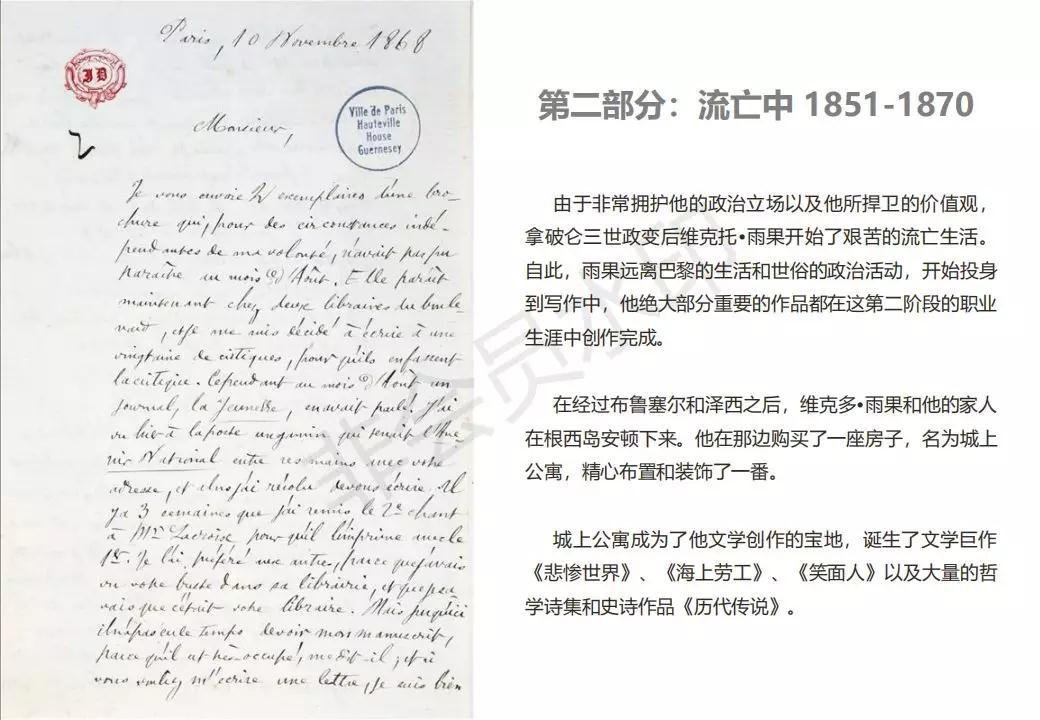 Paris, 10 Novembre 1868
JD
Ville de Paris
Hauteville
House
Guernesey
Monsieur,
Je vous envoie 2 exemplaires d'une bro-
chure qui, pour des circonstances indé-
pendantes de ma volonté, n'avait pas pu
paraître au mois d'Août. Elle paraît
maintenant chez deux libraires du boule-
vard, et je me suis décidé à écrire à une
vingtaine de critiques, pour qu'ils en fassent
la critique. Cependant au mois d'Août un
journal, la Jeunesse, en avait parlé. J'ai
vu hier à la poste un gamin qui tenait l'Ave-
nir National entre ses mains avec votre
adresse, et alors j'ai résolu de vous écrire. Il
y a 3 semaines que j'ai remis le 2e chant
à Mr Lacroix pour qu'il l'imprime avec le
1er. Je l'ai préféré aux autres, parce que j'avais
vu votre buste dans sa librairie, et que je sa-
vais que c'était votre libraire. Mais jusqu'ici
il n'a pas eu le temps de voir mon manuscrit,
parce qu'il est très occupé, me dit-il ; et si
vous vouliez m'écrire une lettre, je suis bien
第二部分：流亡中 1851-1870
由于非常拥护他的政治立场以及他所捍卫的价值观，
拿破仑三世政变后维克托•雨果开始了艰苦的流亡生活。
自此，雨果远离巴黎的生活和世俗的政治活动，开始投身
到写作中，他绝大部分重要的作品都在这第二阶段的职业
生涯中创作完成。
在经过布鲁塞尔和泽西之后，维克多•雨果和他的家人
在根西岛安顿下来。他在那边购买了一座房子，名为城上
公寓，精心布置和装饰了一番。
城上公寓成为了他文学创作的宝地，诞生了文学巨作
《悲惨世界》、《海上劳工》、《笑面人》以及大量的哲
学诗集和史诗作品《历代传说》。
非会员水印